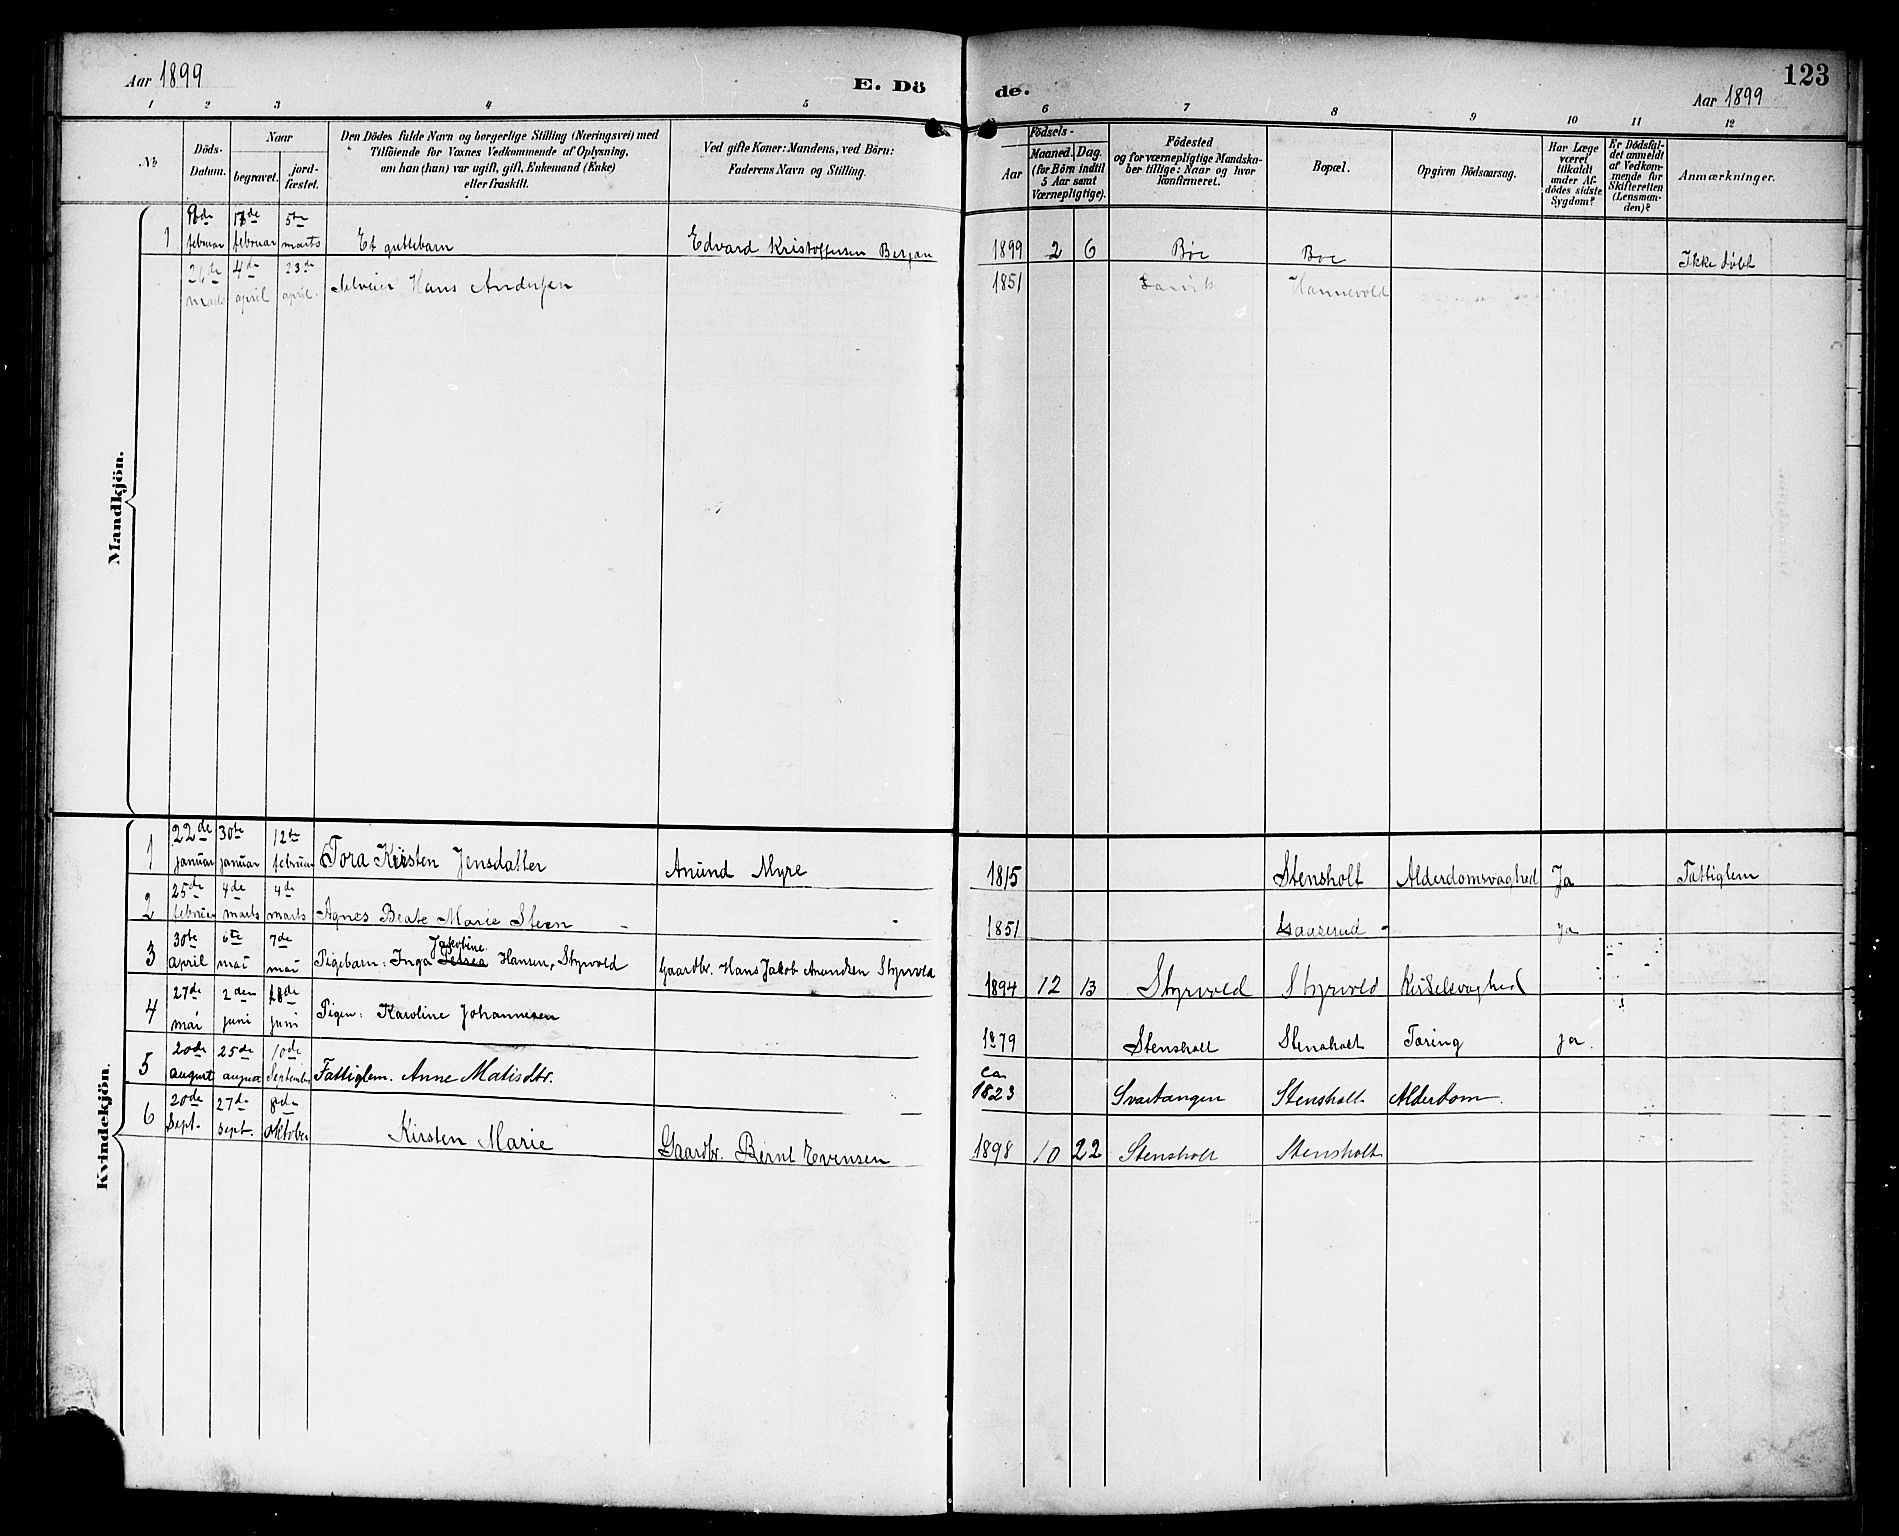 Aar 1899
E. Dö
de.
Aar 1899
123
1 2 3 4 5 6 7 8 9 10 11 12
No
Döds-
Datum.
Naar
begravet.
jord-
fæstet.
Den Dödes fulde Navn og borgerlige Stilling (Næringsvei) med
Tilföiende for Voxnes Vedkommende af Oplysning,
om han (hun) var ugift, gift, Enkemand (Enke)
eller fraskilt.
Ved gifte Koner: Mandens, ved Börn:
Faderens Navn og Stilling.
Födsels-
Aar
Maaned. Dag.
(for Börn indtil
5 Aar samt
Værnepligtige).
Födested
og for værnepligtige Mandska-
ber tillige: Naar og hvor
konfirmeret.
Bopæl.
Opgiven Dödsaarsag.
Har Læge
været
tilkaldt
under Af-
dödes sidste
Sygdom?
Er Dödsfal-
det anmeldt
af Vedkom-
mende for
Skifteretten
(Lensman-
den)?
Anmærkninger.
Mandkjön.
1 februar februar 5te marts Et guttebarn Edvard Kristoffersen Bergan 1899 2 6 Böe Boe Ikke döbt
26de marts 4de april 23de april. Hans Andersen 1851 Larvik Hannevold
Kvindekjön.
1 22de januar 30te januar 12te februar Tora Kirsten Jensdatter Anund Myre 1815 Stensholt Alderdomsvaghed Ja Fattiglem
2 25de februar 4de marts 4de marts Agnes Beate Marie Steen 1851 ja
3 30te april 6te mai 7de mai Pigebarn: Inga Jakobine Petrea Hansen, Styrvold Gaardbr. Hans Jakob Anundsen Styrvold 1894 12 13 Styrvold Styrvold
4 27de mai 2den juni 18de juni Pigen: Karoline Johannesen 1879 Stensholt Stensholt Tæring ja.
5 20de august 25de august 10de September Fattiglem. Anne Matisdtr. ca 1823 Svartangen Stensholt Alderdom.
6 20de Sept. 27de sept. 8de oktober Kirsten Marie Gaardbr. Bernt Evensen 1898 10 22 Stensholt Stensholt